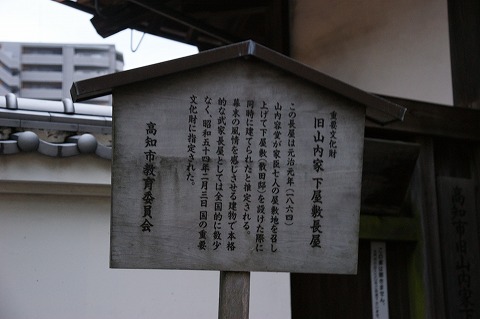 重要文化財
旧山内家 下屋敷長屋
この長屋は元治元年(一八六四)
山内容堂が家臣七人の屋敷地を召し
上げて下屋敷(散田邸)を設けた際に
同時に建てられたと推定される。
幕末の風情を感じさせる建物で本格
的な武家長屋としては全国的に数少
なく、昭和五十四年二月三日 国の重要
文化財に指定された。
高知市教育委員会
高知市旧山内家